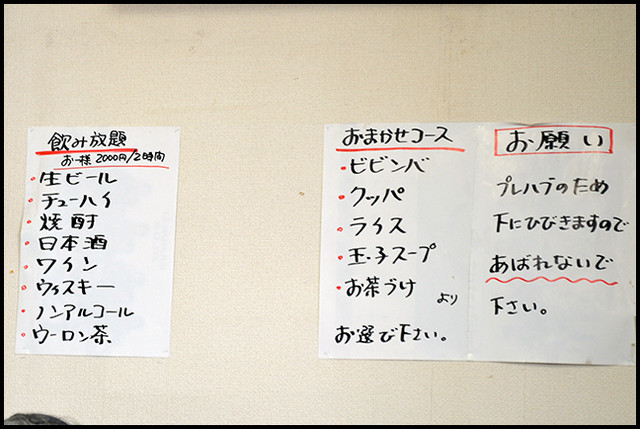 飲み放題
お一様2000円/2時間
・生ビール
・チューハイ
・焼酎
・日本酒
・ワイン
・ウィスキー
・ノンアルコール
・ウーロン茶
おまかせコース
・ビビンバ
・クッパ
・ライス
・玉子スープ
・お茶づけ
より
お選び下さい。
お願い
プレハブのため
下にひびきますので
あばれないで
下さい。